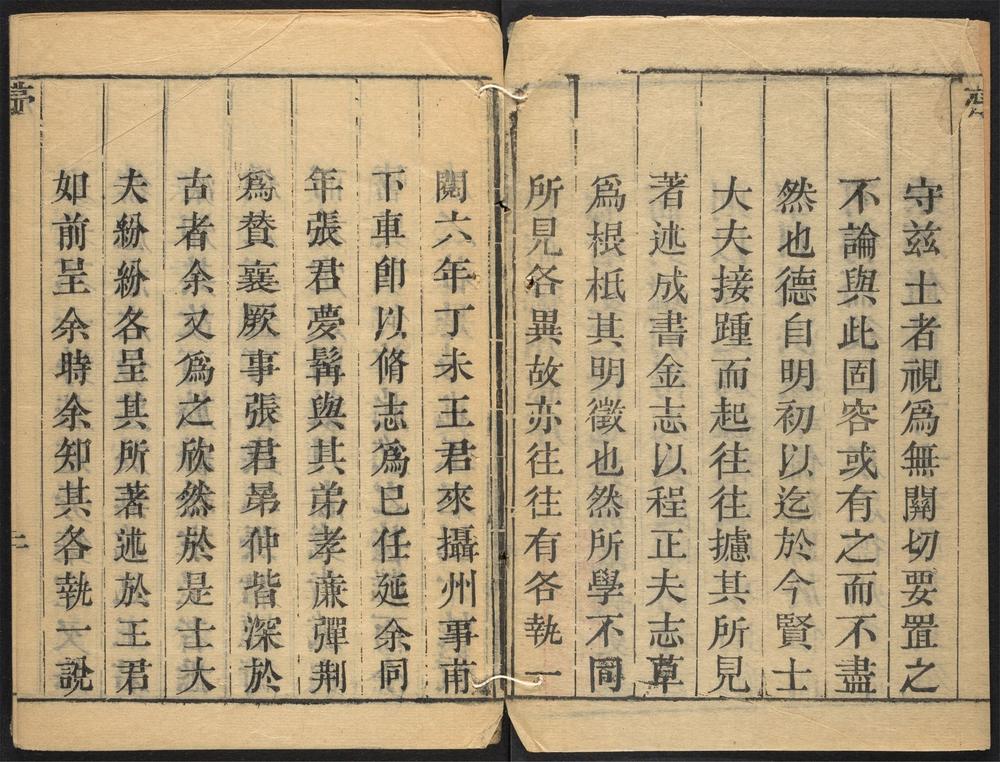 守兹土者視爲無關切要置之
不論與此固容或有之而不盡
然也德自明初以迄於今賢士
大夫接踵而起往往攄其所見
著述成書金志以程正夫志草
爲根柢其明徵也然所學不同
所見各異故亦往往有各執一
閱六年丁未王君來攝州事甫
下車卽以脩志爲已任延余同
年張君夢髯與其弟孝亷彈荆
爲賛襄厥事張君昴仲皆深於
古者余又爲之欣然於是士大
夫紛紛各呈其所著述於王君
如前呈余時余知其各執一說
二